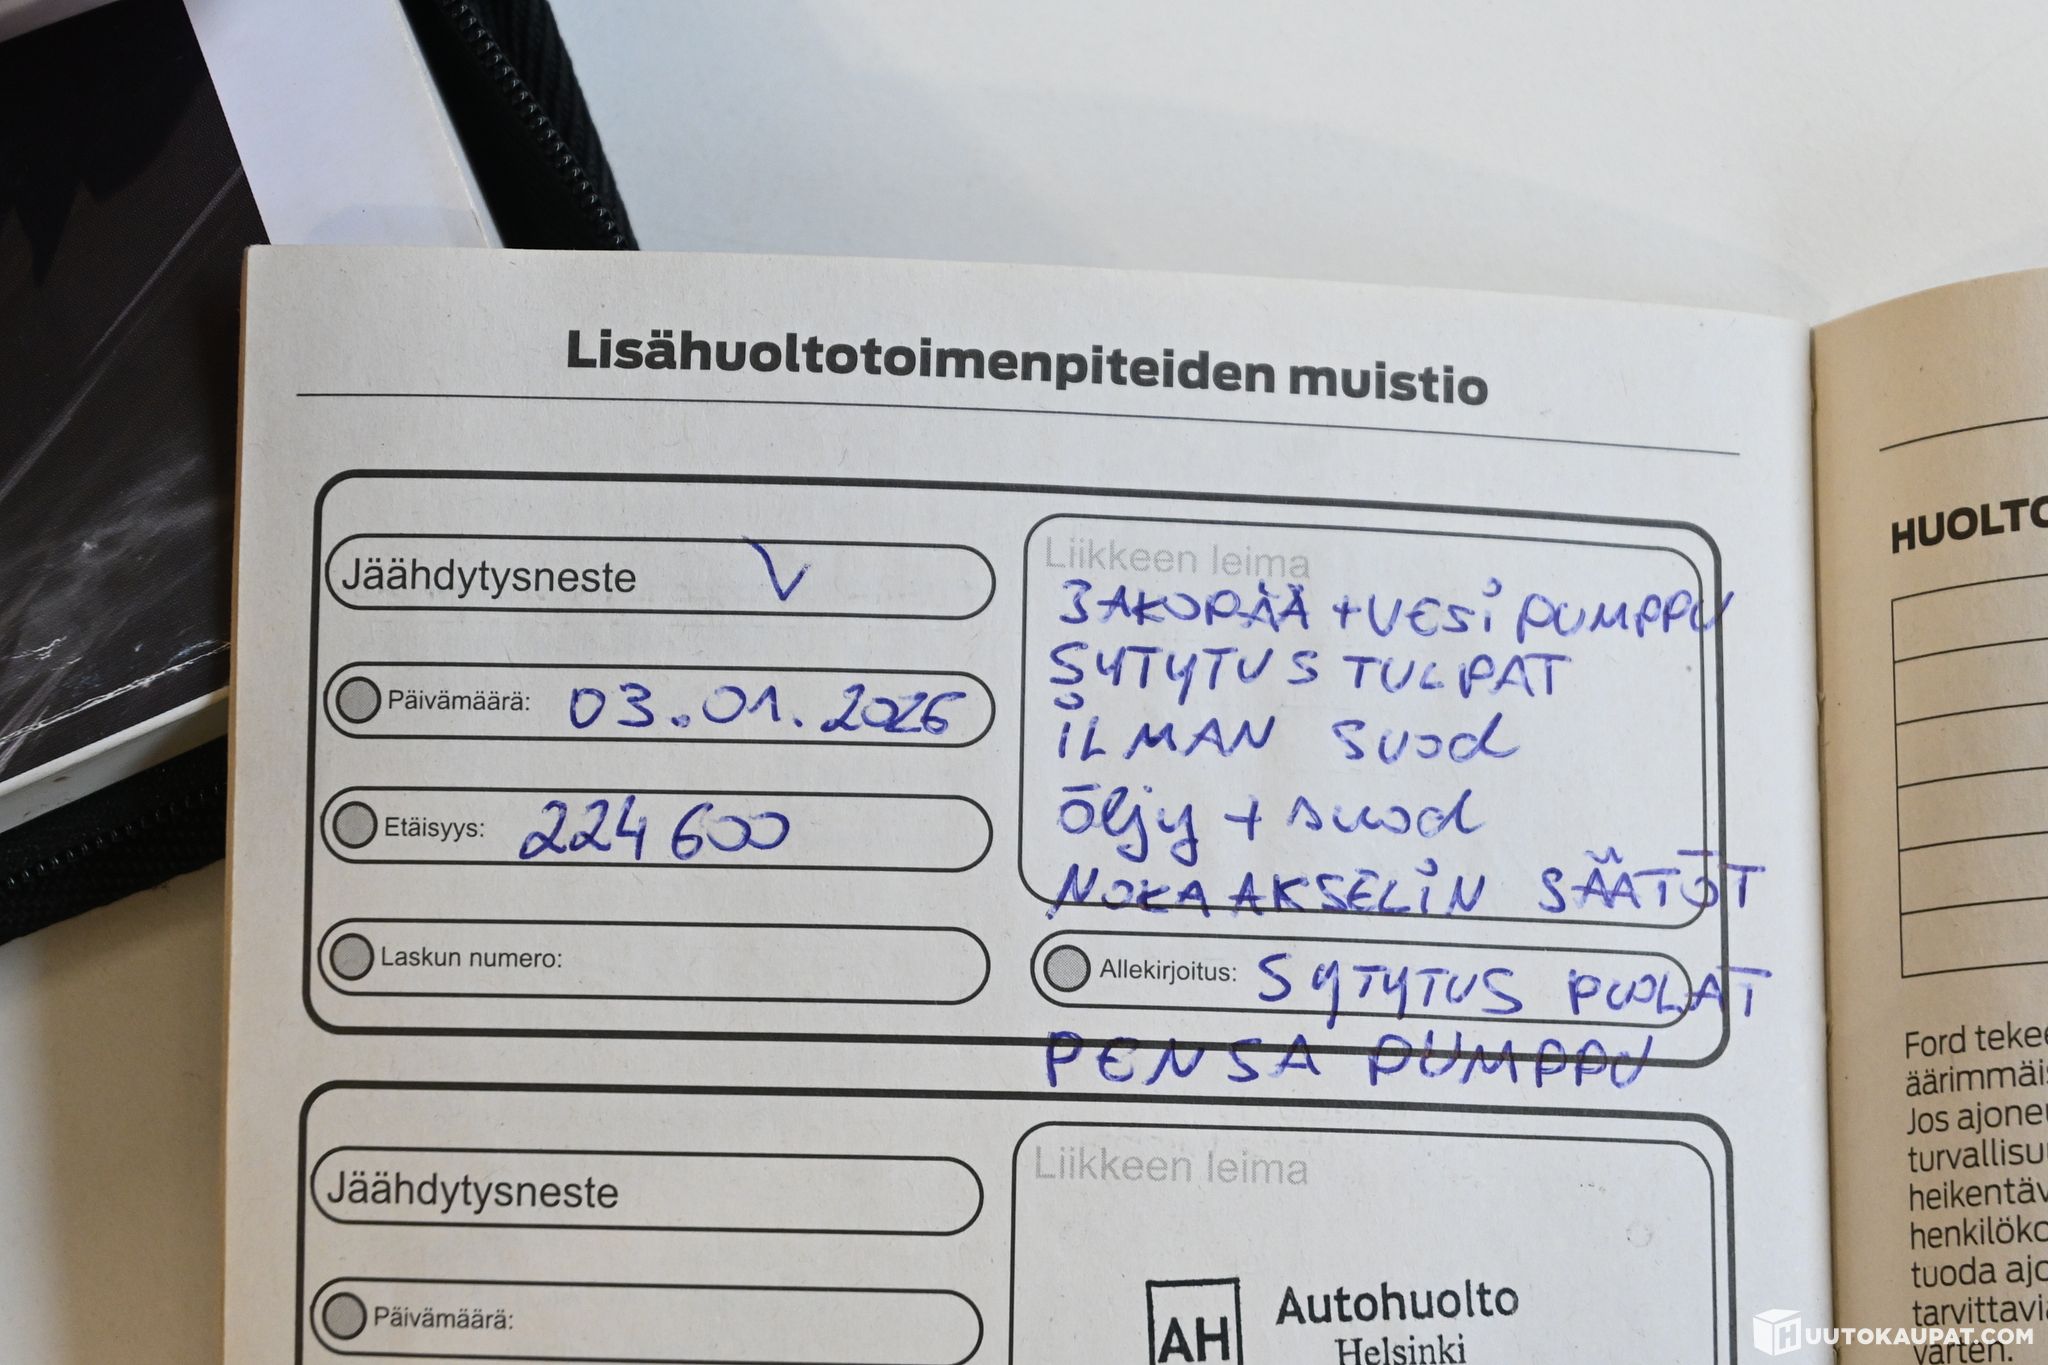 Lisähuoltotoimenpiteiden muistio
Jäähdytysneste V
Päivämäärä: 03.01.2026
Etäisyys: 224 600
Laskun numero:
Liikkeen leima
JAKOPÄÄ + VESI PUMPPU
SYTYTUS TULPAT
ILMAN SUOD
Öljy + suod
NOKA AKSELIN SÄÄTÖT
Allekirjoitus: SYTYTUS PUOLAT
PENSA PUMPPU
Jäähdytysneste
Päivämäärä:
Liikkeen leima
AH Autohuolto
Helsinki
HUOLTO
Ford tekee
äärimmäis
Jos ajoneu
turvallisuu
heikentäv
henkilöko
tuoda ajo
tarvittavia
varten.
HUUTOKAUPAT.COM